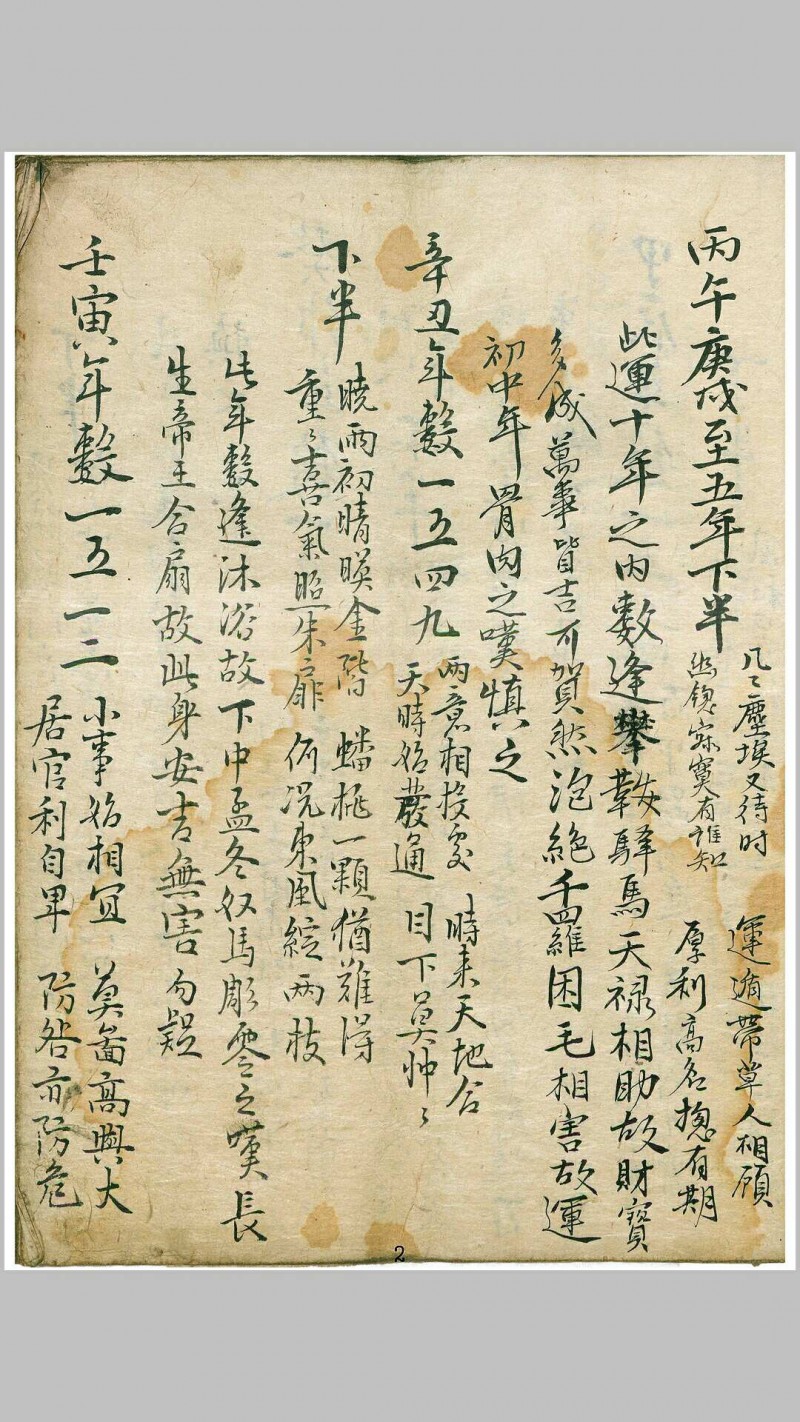 丙午庚戌至五年下半
凡〻塵埃又待时 運遁帶草人相顾
寂寞有誰知 厚利高名揔有期
此運十年之内數逢攀鞍驛馬天禄相助故財寶
多成萬事皆吉可賀然泡絶千四維困毛相害故運
初中年骨肉之嘆慎之
辛丑年數一五四九
两意相投处 時来天地合
天時始發通 目下莫忡〻
下半
曉雨初晴暎金階 蟠桃一顆猶難得
重〻喜氣照朱扉 何况東風綻两枝
此年數逢沐浴故下中孟冬奴馬彫零之嘆長
生帝王合扇故此身安吉無害勿疑
壬寅年數一五一二
小事始相宜 莫啚高興大
居官利自卑 防咎亦防危
2